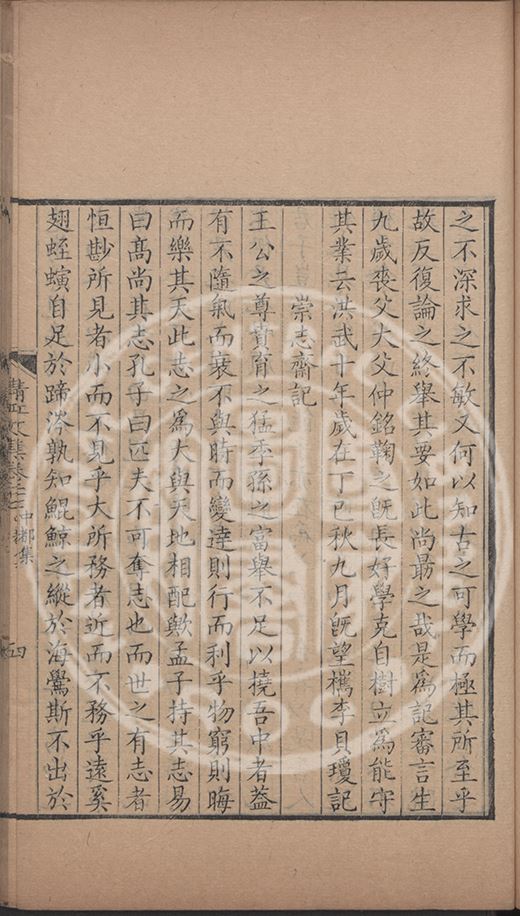 之不深求之不敏又何以知古之可學而極其所至乎
故反復論之終舉其要如此尚勗之哉是爲記審言生
九歲喪父大父仲銘鞠之旣長好學克自樹立爲能守
其業云洪武廿年歲在丁巳秋九月旣望檇李貝瓊記
崇志齋記
王公之尊賁育之猛季孫之富舉不足以撓吾中者蓋
有不隨氣而衰不與時而變達則行而利乎物窮則晦
而樂其天此志之爲大與天地相配歟孟子持其志易
曰髙尚其志孔子曰匹夫不可奪志也而世之有志者
恒尠所見者小而不見乎大所務者近而不務乎遠奚
翅蛭螾自足於蹄涔孰知鯤鯨之縱於海鷽斯不出於
清江文集卷之 中都集
四